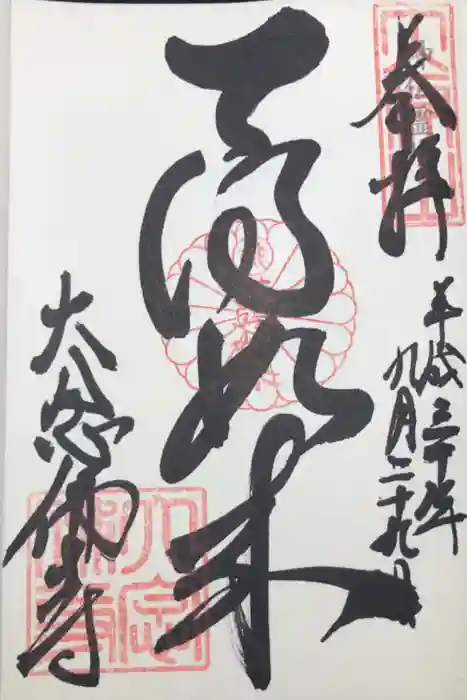 奉拝
平成三十年
九月二十九日
天得如来
大念佛寺
大念
佛寺